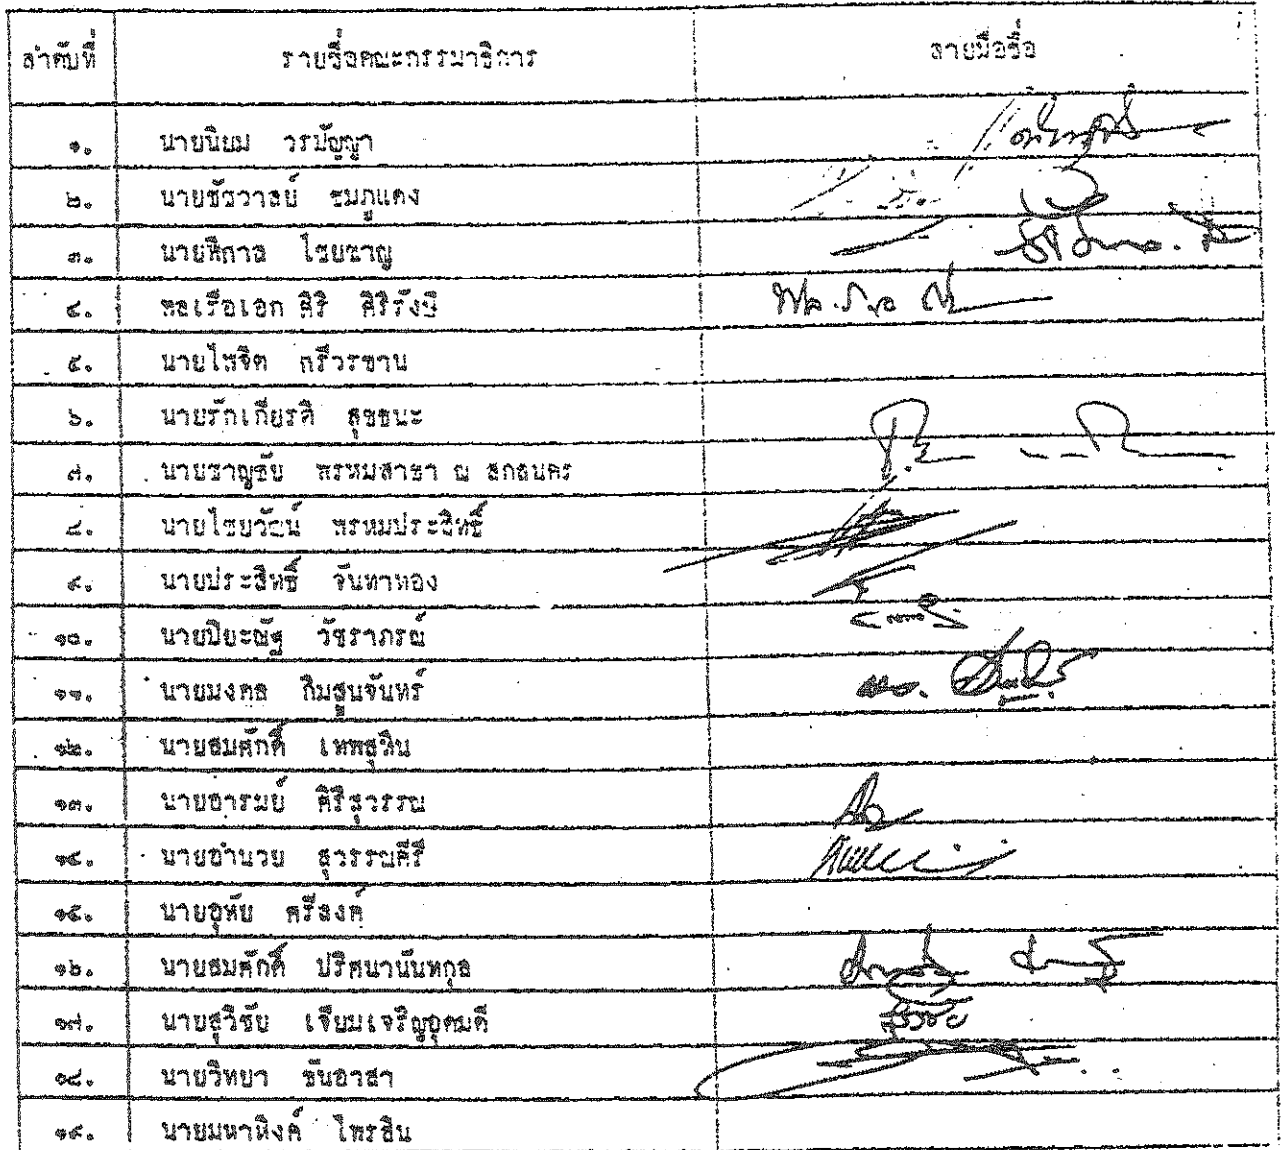 ลำดับที่ รายชื่อคณะกรรมาธิการ ลายมือชื่อ
๑. นายนิยม วรปัญญา
๒. นายชัชวาลย์ ชมภูแดง
๓. นายพิกาล ไชยชาญ
๔. พลเรือเอก ศิริ ศิริรังษี
๕. นายไพจิต ศรีวรขาน
๖. นายรักเกียรติ สุขธนะ
๗. นายชาญชัย พรหมสาขา ณ สกลนคร
๘. นายไชยวัฒน์ พรหมประสิทธิ์
๙. นายประสิทธิ์ จันทาทอง
๑๐. นายปิยะณัฐ วัชราภรณ์
๑๑. นายมงคล กิมสูนจันทร์
๑๒. นายสมศักดิ์ เทพสุทิน
๑๓. นายอารมย์ คีรีสุวรรณ
๑๔. นายอำนวย สุวรรณคีรี
๑๕. นายอุทัย ศรีสงค์
๑๖. นายสมศักดิ์ ปริศนานันทกุล
๑๗. นายสุวิชัย เจียมเจริญอุดมดี
๑๘. นายวิทยา ขันอาสา
๑๙. นายมหาหิงค์ ไพรสิน